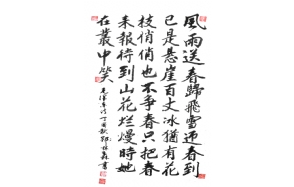 風雨送春歸飛雪迎春到
已是懸崖百丈冰猶有花
枝俏俏也不爭春只把春
來報待到山花爛熳時她
在叢中笑